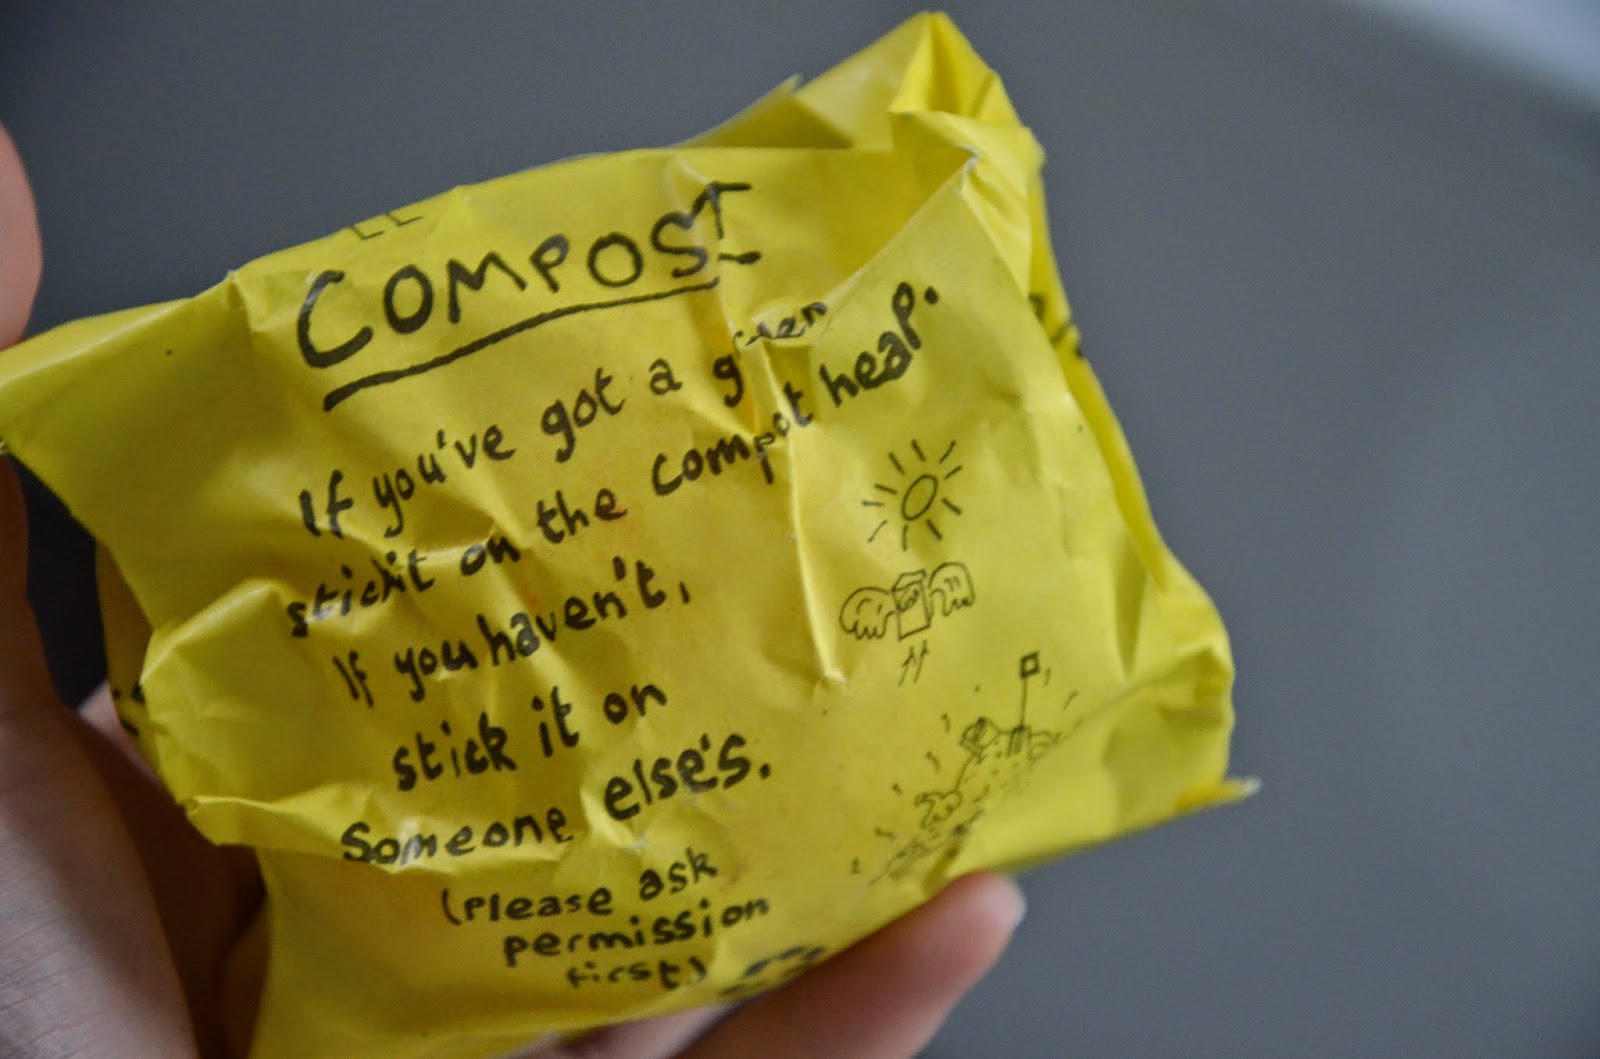 COMPOST
If you've got a garden
stick it on the compost heap.
If you haven't,
stick it on
someone else's.
(Please ask
permission
first)